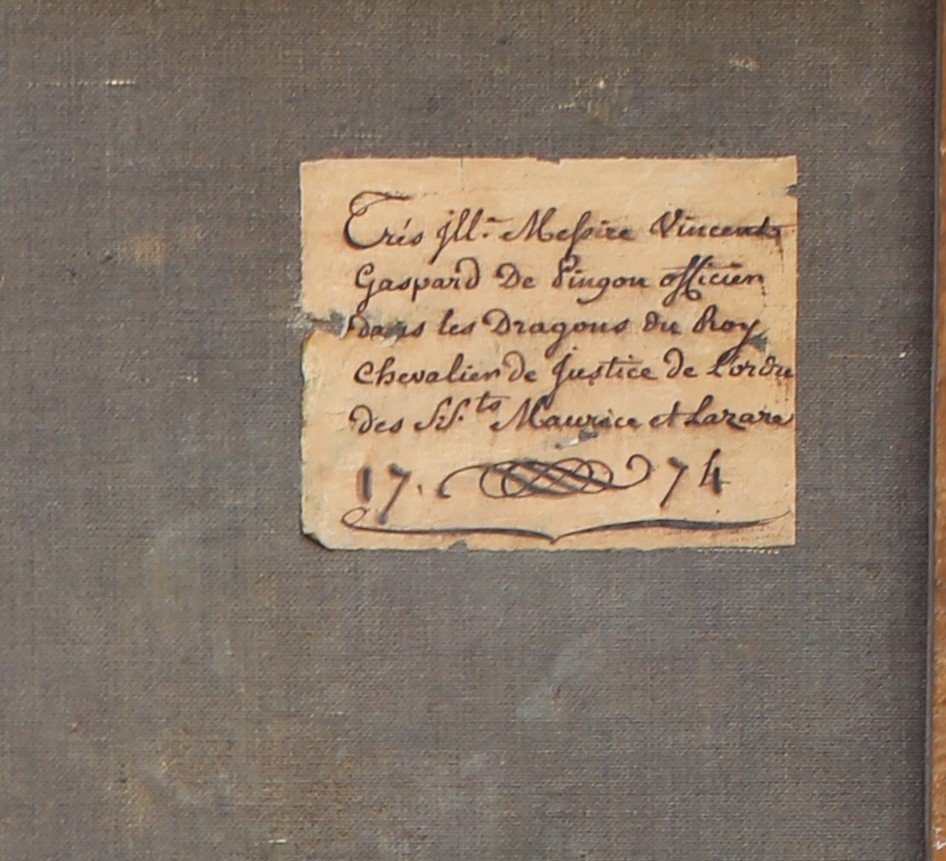 Trés jll.e Messire Vincent
Gaspard De Pingon officier
dans les Dragons du Roy
Chevalier de Justice de l'ordre
des S.S.ts Maurice et Lazare
17. 74